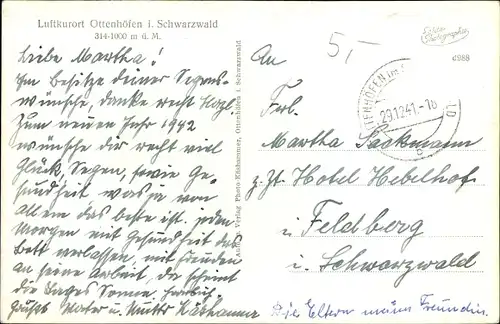 Luftkurort Ottenhöfen i. Schwarzwald
314-1000 m ü. M.
Liebe Martha!
Im Besitze deiner Segens-
wünsche, danke recht herzl.
Zum neuen Jahr 1942
wünsche dir recht viel
Glück, Segen, sowie Ge-
sundheit was ja von
allem das beste ist. jeden
Morgen mit Gesundheit das
Bett verlassen, mit Freuden
an seine Arbeit, da scheint
die Tages Sonne
Vater u. Mutter
Verlag Photo Ottenhöfen i. Schwarzwald
5,-
Echte Photographie
d988
OTTENHÖFEN
29.12.41.-18
An
Frl.
Martha Packmann
z. Zt. Hotel Hebelhof
in Feldberg
i. Schwarzwald
Die Eltern meiner Freundin.